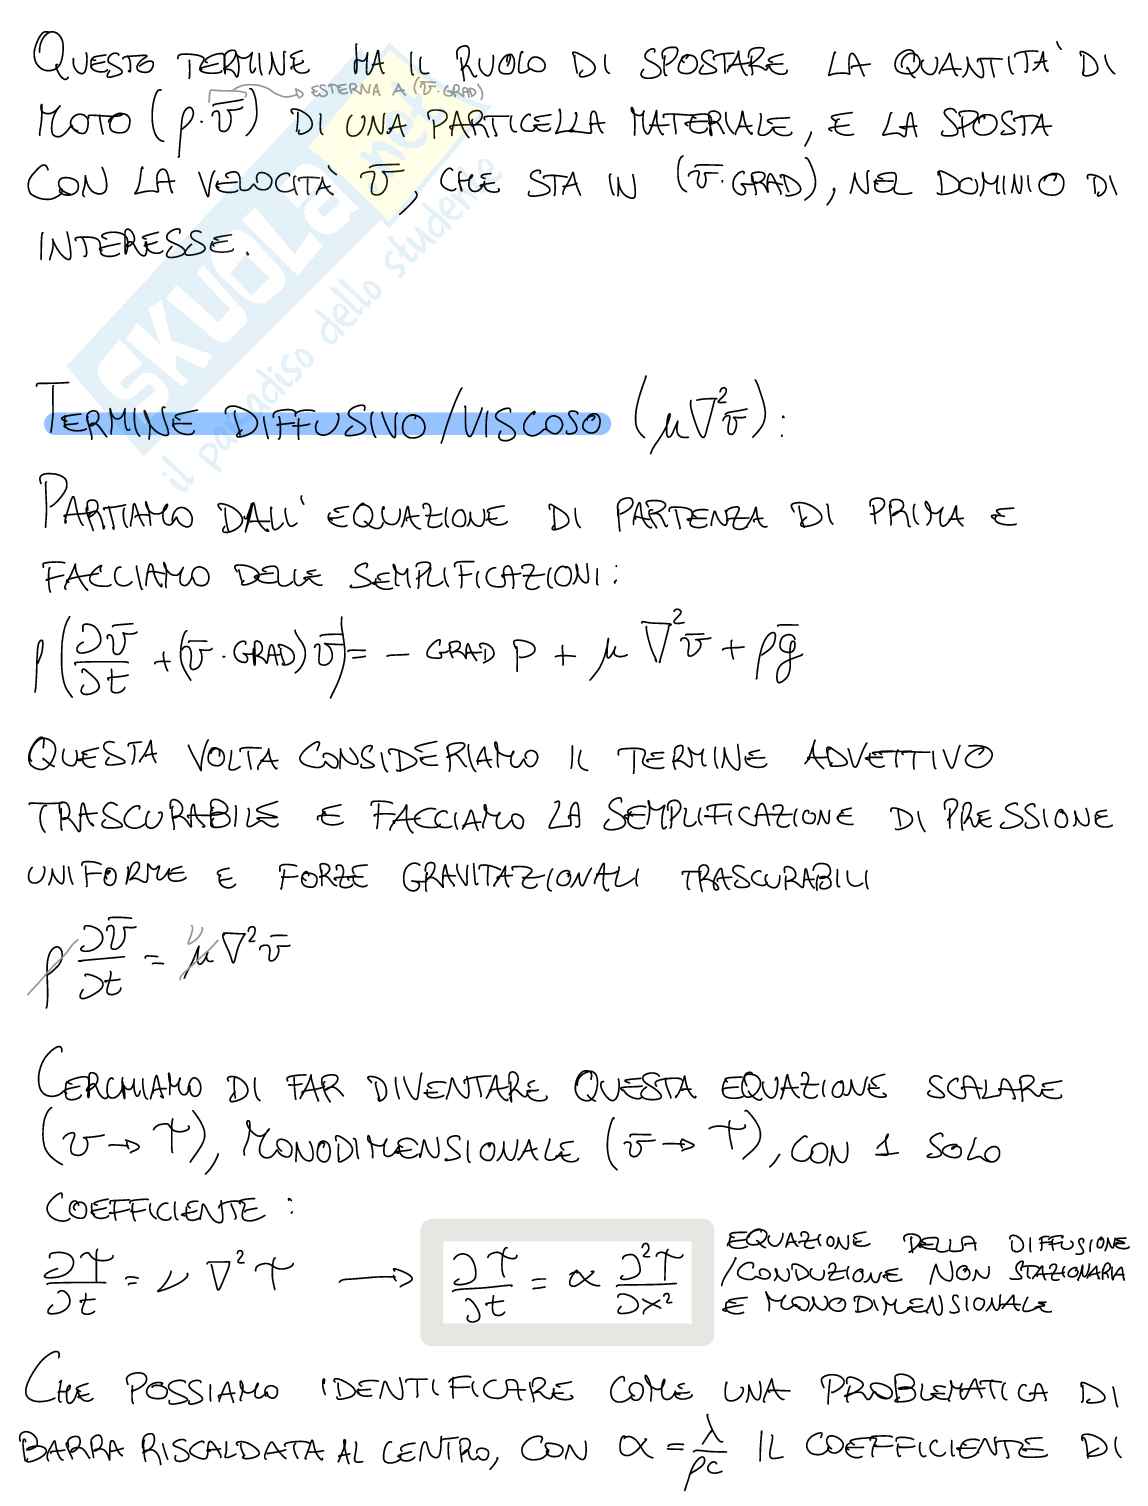 QUESTO TERMINE HA IL RUOLO DI SPOSTARE LA QUANTITA' DI
→ ESTERNA A (v̄·GRAD)
MOTO (ρ·v̄) DI UNA PARTICELLA MATERIALE, E LA SPOSTA
CON LA VELOCITÀ v̄, CHE STA IN (v̄·GRAD), NEL DOMINIO DI
INTERESSE.
SKUOLA.net
il paradiso dello studente
TERMINE DIFFUSIVO/VISCOSO (μ∇²v̄):
PARTIAMO DALL'EQUAZIONE DI PARTENZA DI PRIMA E
FACCIAMO DELLE SEMPLIFICAZIONI:
ρ(∂v̄/∂t + (v̄·GRAD)v̄) = - GRAD P + μ∇²v̄ + ρḡ
QUESTA VOLTA CONSIDERIAMO IL TERMINE ADVETTIVO
TRASCURABILE E FACCIAMO LA SEMPLIFICAZIONE DI PRESSIONE
UNIFORME E FORZE GRAVITAZIONALI TRASCURABILI
ν
ρ ∂v̄/∂t = μ∇²v̄
CERCHIAMO DI FAR DIVENTARE QUESTA EQUAZIONE SCALARE
(v→T), MONODIMENSIONALE (v̄→T), CON 1 SOLO
COEFFICIENTE:
∂T/∂t = ν∇²T → ∂T/∂t = α ∂²T/∂x²
EQUAZIONE DELLA DIFFUSIONE
/CONDUZIONE NON STAZIONARIA
E MONODIMENSIONALE
CHE POSSIAMO IDENTIFICARE COME UNA PROBLEMATICA DI
BARRA RISCALDATA AL CENTRO, CON α = λ/ρc IL COEFFICIENTE DI